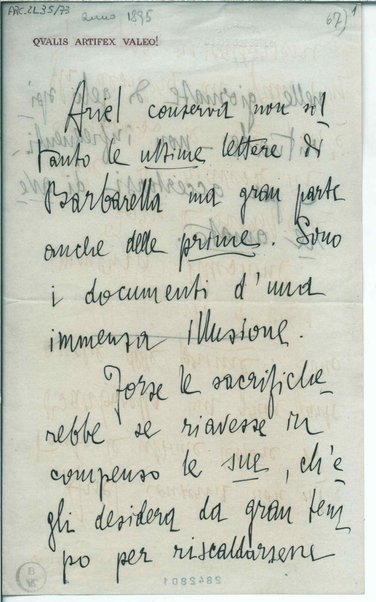 ARC.2L.35/73
anno 1895
67) 1
QVALIS ARTIFEX VALEO!
Ariel conserva non sol
tanto le ultime lettere di
Barbarella ma gran parte
anche delle prime. Sono
i documenti d'una
immensa illusione.
Forse le sacrifiche
rebbe se riavesse in
compenso le sue, ch'e
gli desidera da gran tem
po per riscaldarsene
2842801